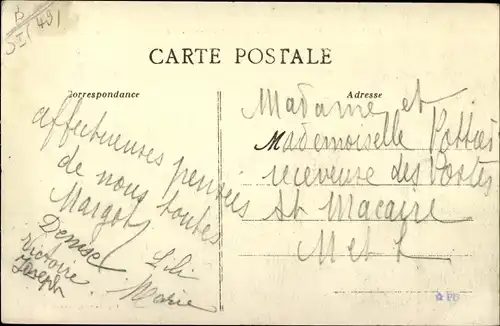 CARTE POSTALE
Correspondance
affectueuses pensées
de nous toutes
Margot
Denise
Lili
Victoire
Marie
Joseph
Adresse
Madame et
Mademoiselle Pottier
receveuse des Postes
St Macaire
M et L
PB